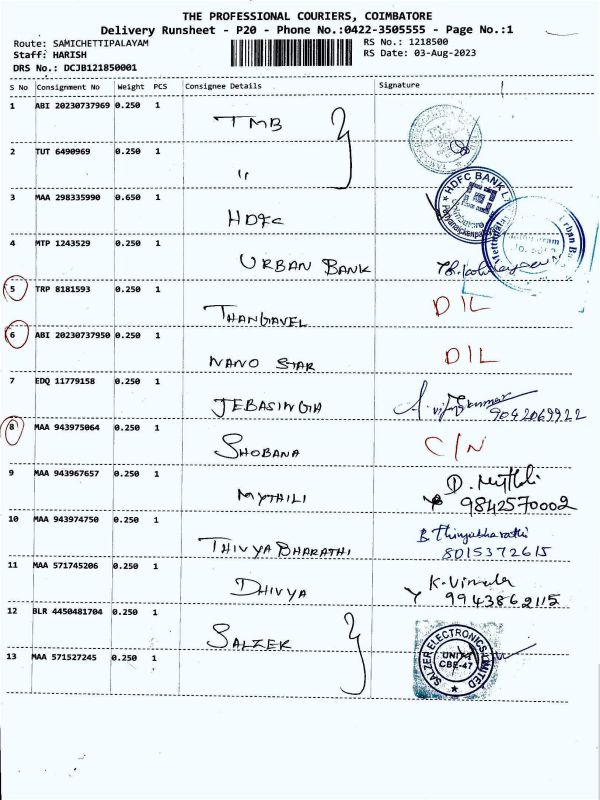 THE PROFESSIONAL COURIERS, COIMBATORE
Delivery Runsheet - P20 - Phone No.:0422-3505555 - Page No.:1
Route: SAMICHETTIPALAYAM
RS No.: 1218500
Staff: HARISH
RS Date: 03-Aug-2023
DRS No.: DCJB121850001
S No Consignment No Weight PCS Consignee Details Signature
1 ABI 20230737969 0.250 1 TMB
2 TUT 6490969 0.250 1 "
3 MAA 298335990 0.650 1 HDFC
HDFC BANK
4 MTP 1243529 0.250 1 URBAN BANK
Urban Ba
5 TRP 8181593 0.250 1 THANGAVEL D/L
6 ABI 20230737950 0.250 1 NANO STAR D/L
7 EDQ 11779158 0.250 1 JEBASINGIA
9042069922
8 MAA 943975064 0.250 1 SHOBANA C/N
9 MAA 943967657 0.250 1 MYTHILI
9842570002
10 MAA 943974750 0.250 1 THIVYABHARATHI B. Thivyabharathi
8015372615
11 MAA 571745206 0.250 1 DHIVYA K. Vimala
9943862115
12 BLR 4450481704 0.250 1 SALZER
13 MAA 571527245 0.250 1
SALZER ELECTRONICS LIMITED
UNIT-I
CBE-47